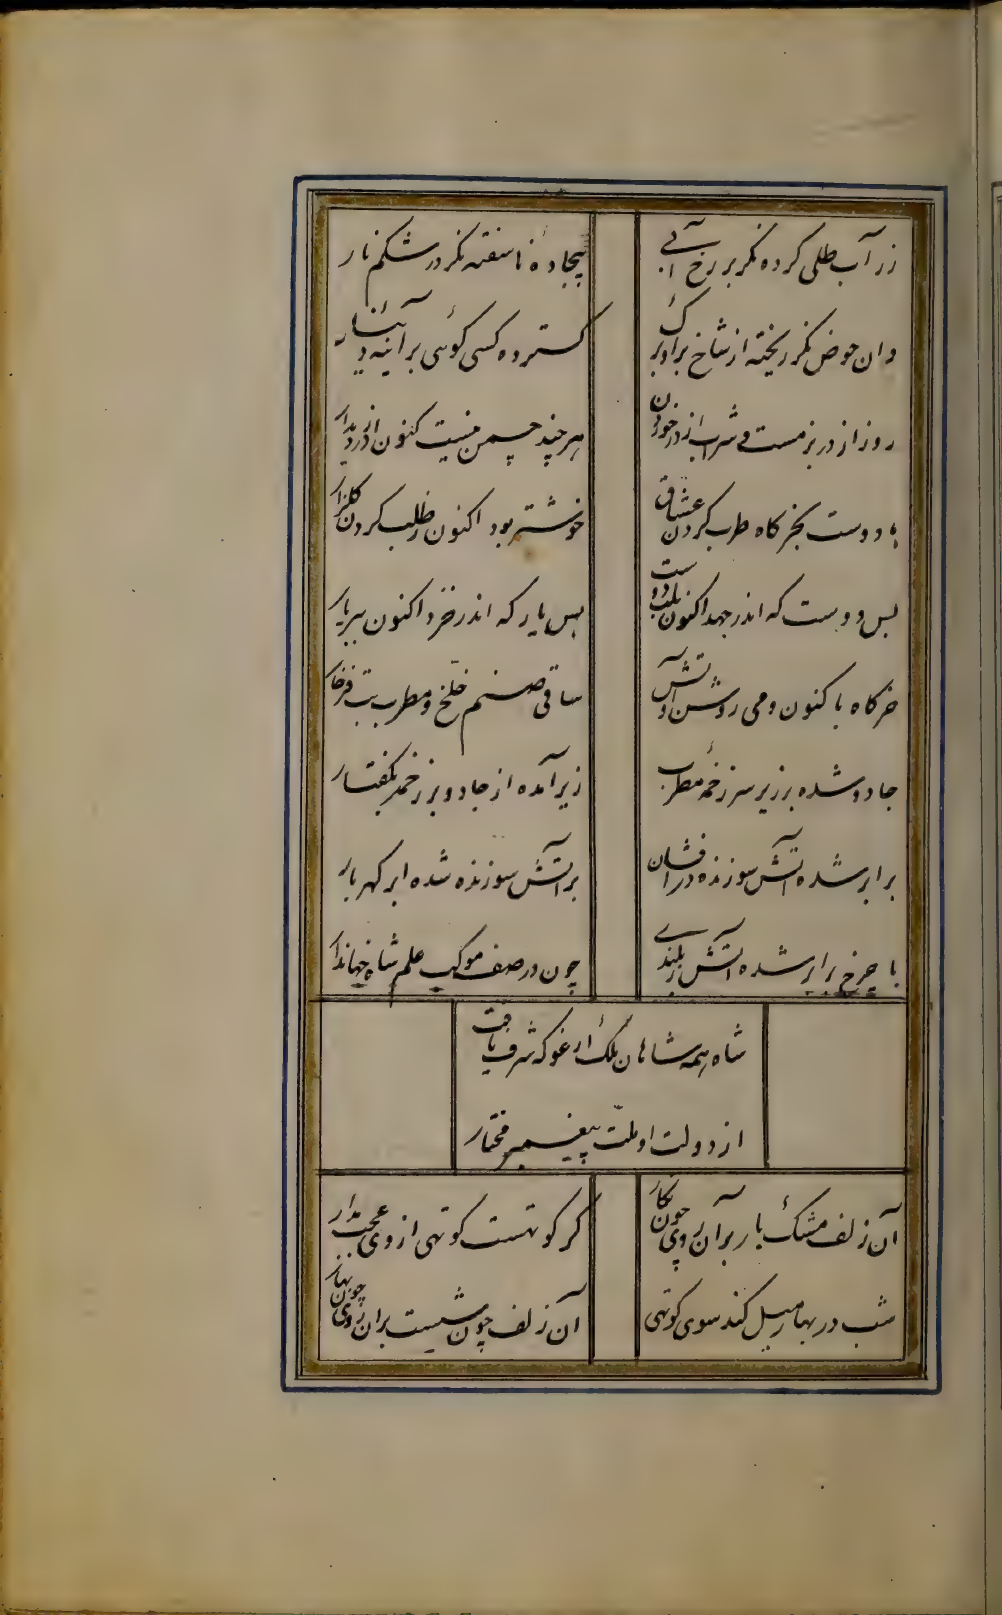 زر آب طلی کرده نکر بر رخ آبی
بیجاده ناسفته نکر در شکم نار
وان حوض نکر ریخته از شاخ برو برک
کسترده کسی کوئی بر آینه دینار
روز از در بزمست و شراب از در خوردن
هر چند چمن نیست کنون از در دیدار
با دوست بخرکاه طرب کردن عشاق
خوشتر بود اکنون ز طلب کردن کلزار
بس دوست که اندر جهد اکنون بلب دوست
بس یار که اندر خزد اکنون ببر یار
خرکاه با کنون و می روشن و آتش
ساقی صنم خلخ و مطرب بت فرخار
جادو شده بر زیر سر زخمهٔ مطرب
زیر آمده از جادو بر زخمه بکفتار
بر ابر شده آتش سوزنده درافشان
بر آتش سوزنده شده ابر کهر بار
با چرخ برابر شده آتش ز بلندی
چون در صف موکب علم شاه جهاندار
شاه همه شاهان ملک ارغو که شرف یافت
از دولت او ملت پیغمبر مختار
آن زلف مشک بار بر آن روی چون نکار
کر کوتهست کوتهی از وی عجب مدار
شب در بهار میل کند سوی کوتهی
آن زلف چون شبست بران روی چون بهار